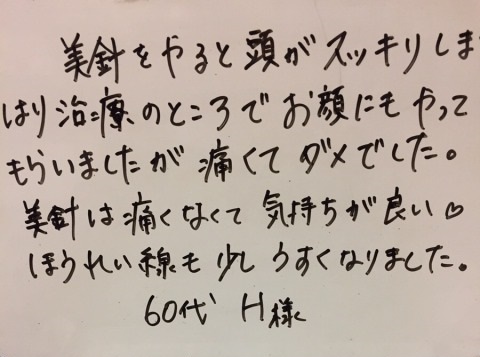 美針をやると頭がスッキリしま
はり治療のところでお顔にもやって
もらいましたが痛くてダメでした。
美針は痛くなくて気持ちが良い♡
ほうれい線も少しうすくなりました。
60代 H様